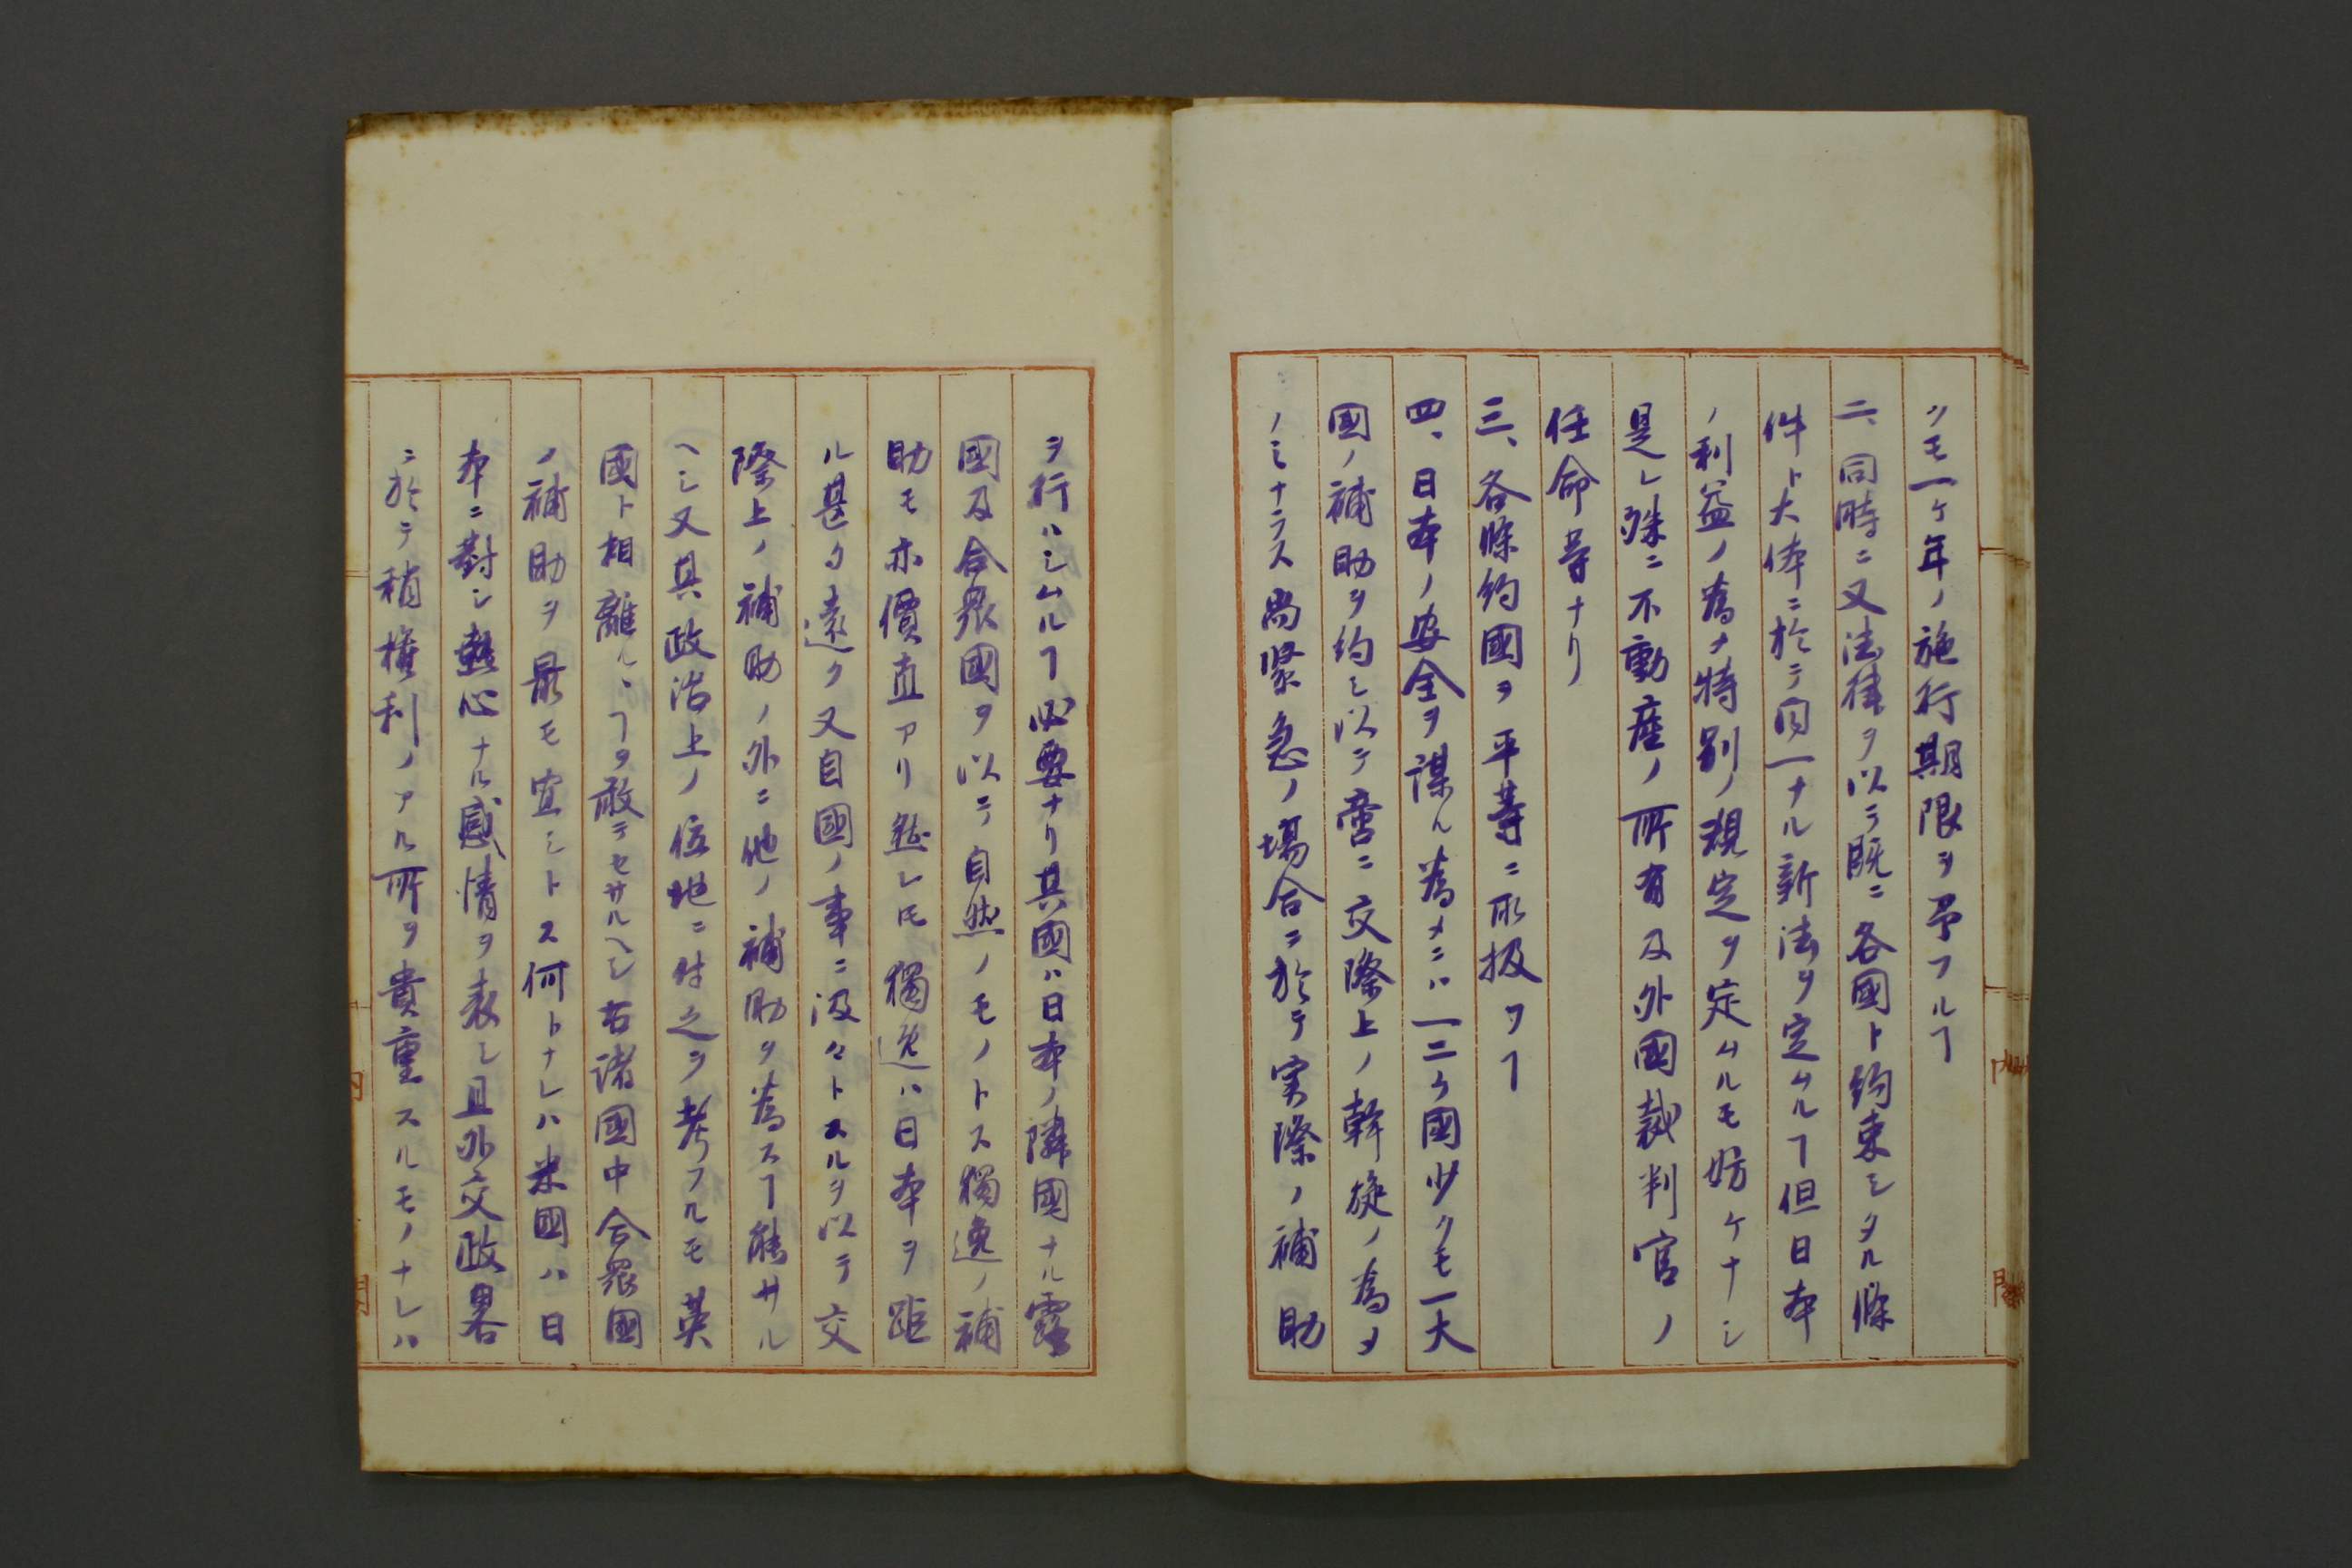 クモ一ケ年ノ施行期限ヲ予フルヿ
二、同時ニ又法律ヲ以テ既ニ各國ト約束シタル條
件ト大体ニ於テ同一ナル新法ヲ定ムルヿ但日本
ノ利益ノ為ナ特別ノ規定ヲ定ムルモ妨ケナシ
是レ殊ニ不動産ノ所有及外國裁判官ノ
任命等ナリ
三、各條約國ヲ平等ニ取扱フヿ
四、日本ノ安全ヲ謀ルル為メニハ一二ケ國少クモ一大
國ノ補助ヲ約シ以テ啻ニ交際上ノ斡旋ノ為メ
ノミナラス尚緊急ノ場合ニ於テ実際ノ補助
ヲ行ハシムルヿ必要ナリ其國ハ日本ノ隣國ナル露
國及合衆國ヲ以テ自然ノモノトス獨逸ノ補
助モ亦價直アリ然レ𪜈獨逸ハ日本ヲ距
ル甚タ遠ク又自國ノ事ニ汲々トスルヲ以テ交
際上ノ補助ノ外ニ他ノ補助ヲ為スヿ能サル
ヘシ又其政治上ノ位地ニ付之ヲ考フルモ英
國ト相離ルヽヿヲ敢テセサルヘシ右諸國中合衆國
ノ補助ヲ最モ宜シトス何トナレハ米國ハ日
本ニ對シ熱心ナル感情ヲ表シ且外交政畧
ニ於テ稍權利ノアル所ヲ貴重スルモノナレハ
内
閣